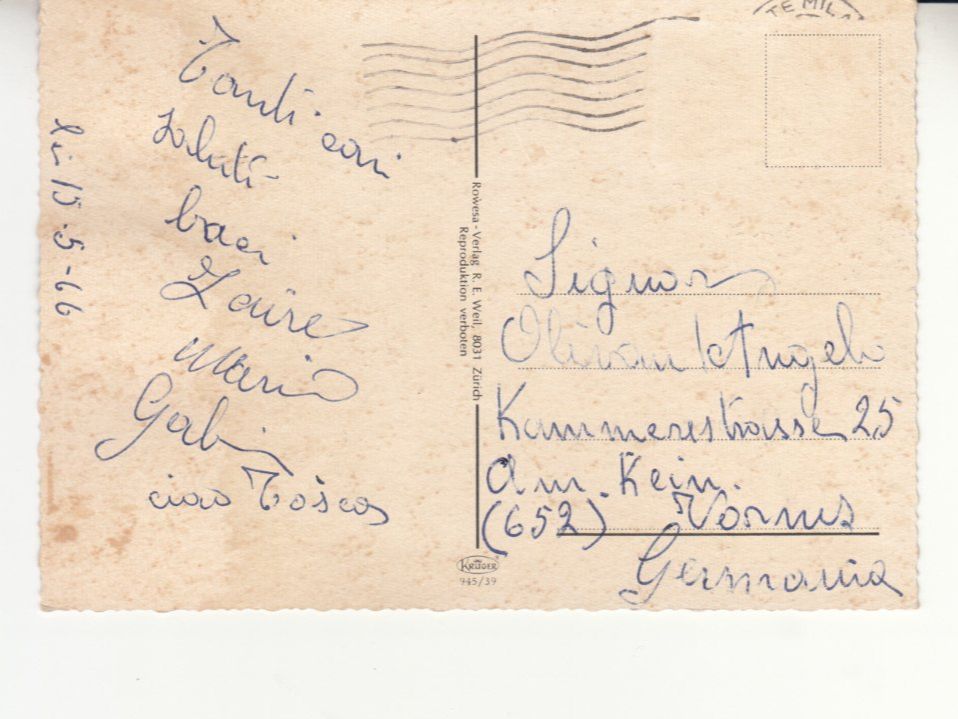 li 15-5-66
Tanti cari
saluti
baci
Laire
Maria
Gabri
ciao Tosca
TE MIL
Rowesa-Verlag R. E. Weil, 8031 Zürich
Reproduktion verboten
KRÜGER
945/39
Signor
Angelo
Kammerestrasse 25
Am. Rein.
(652) Worms
Germania